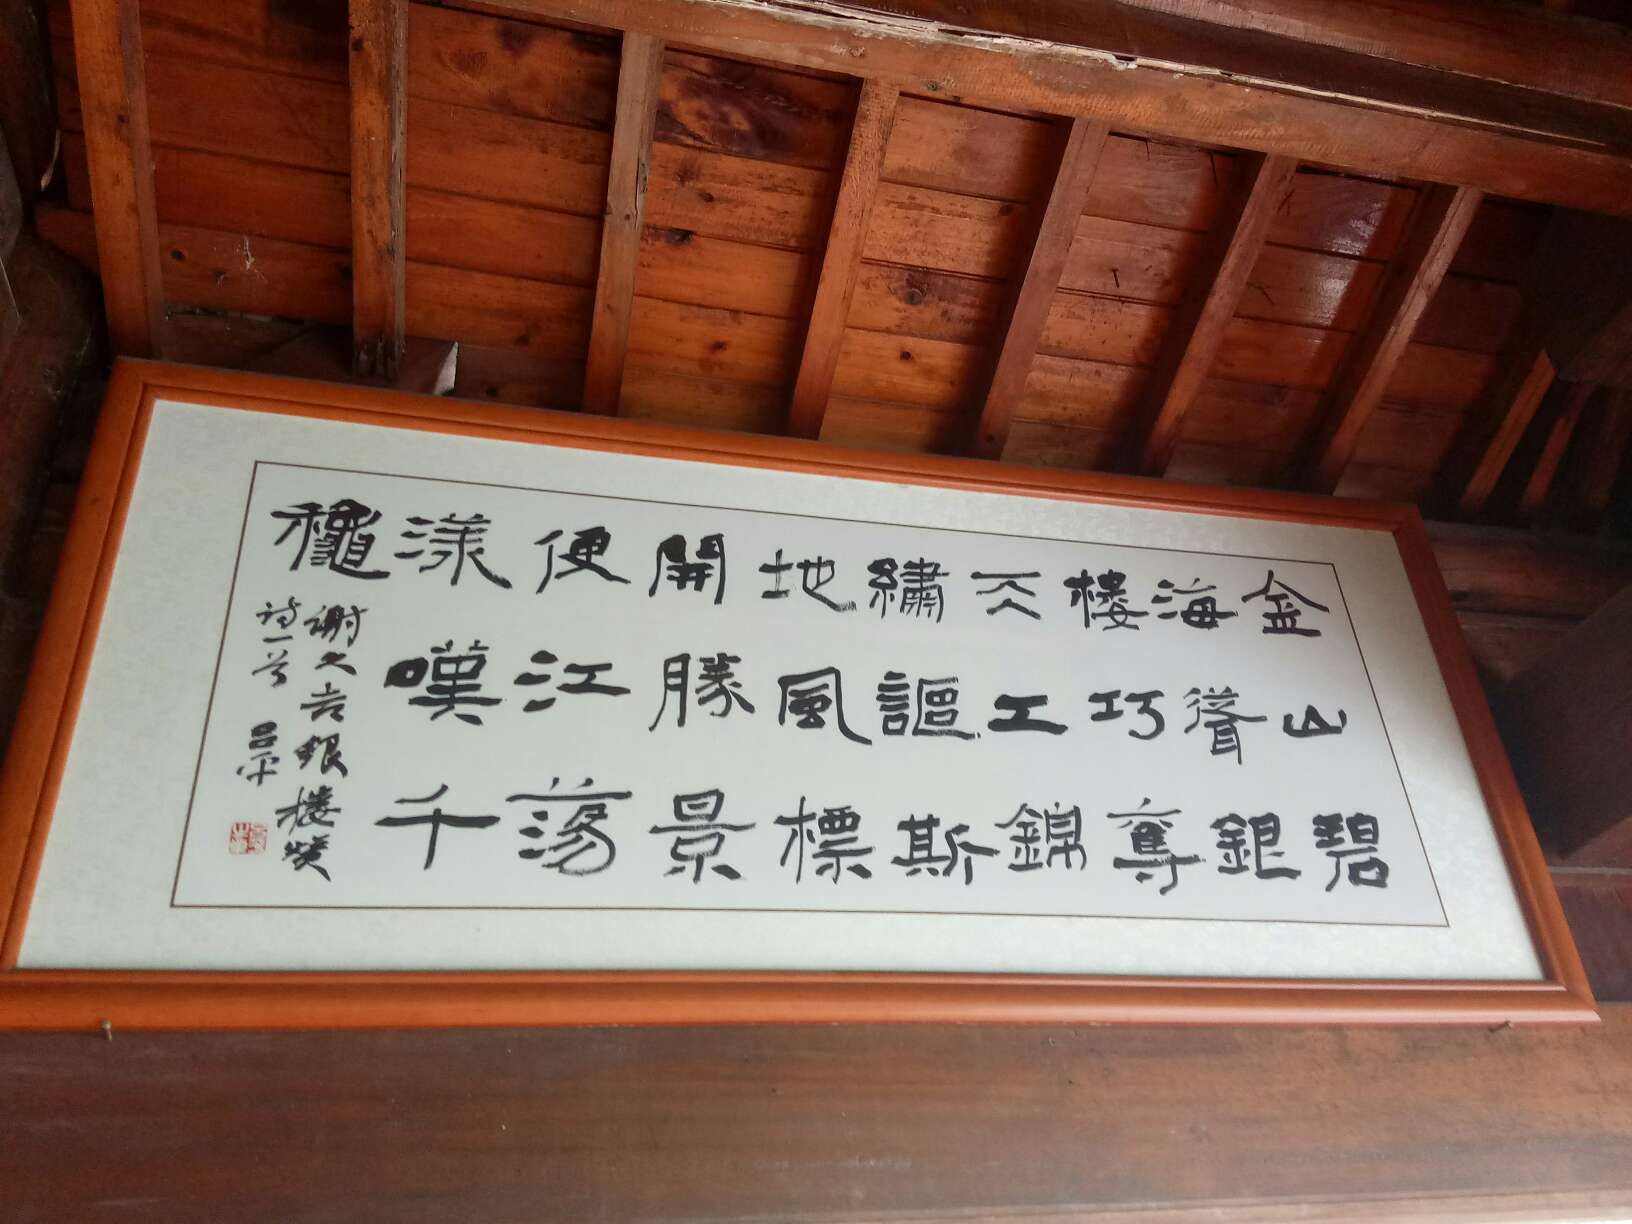 金山碧
海聳銀
樓巧奪
天工錦
繡謳斯
地風標
開勝景
便江蕩
漾嘆千
龝
謝久吉銀樓
詩一首